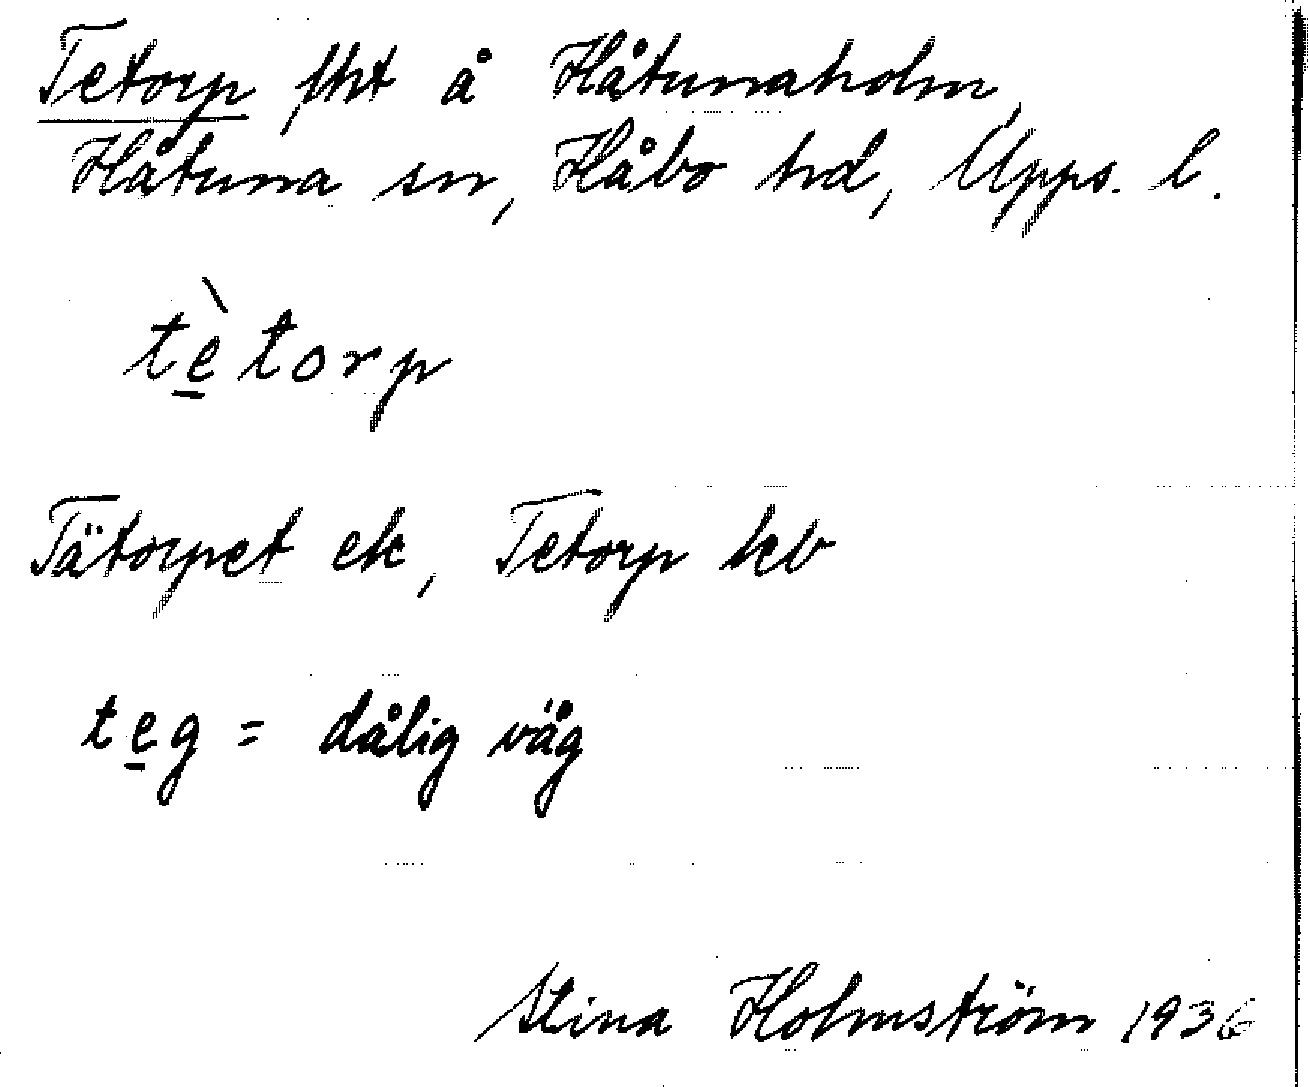 Tetorp fht å Håtunaholm,
Håtuna sn, Håbo hd, Upps. l.
tè̱torp
Tätorpet ek, Tetorp kb
te̱g = dålig väg
Stina Holmström 1936